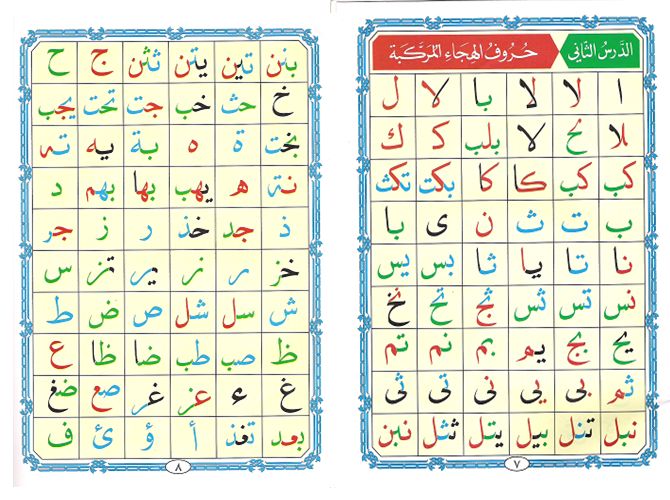 الدَّرْسُ الثَّانِي حُرُوفُ الهِجَاءِ المُرَكَّبَة
ا لا لا با لا ل
لا لح لا بلب ك ك
كب كب كا كا بكت تكث
ب ت ث ن ى با
نا تا يا ثا بس يس
نس تس ثس ثج تح نخ
يح بج يم بم نم تم
ثم بى يى نى تى ثى
نبل تنل بيل يتل ثثل نبن
٧
بنن تين يتن ثثن ج ح
خ حث خب جت تحت يجب
بخت ة ه بة يه ته
نة ه يهب بها بهم د
ذ جد خذ ر ز جر
خز ر نز ير تز س
ش سل شل ص ض ط
ظ صب طب ضا ظا ع
غ ء عز غر صع ضغ
بعد تغذ أ ؤ ئ ف
٨